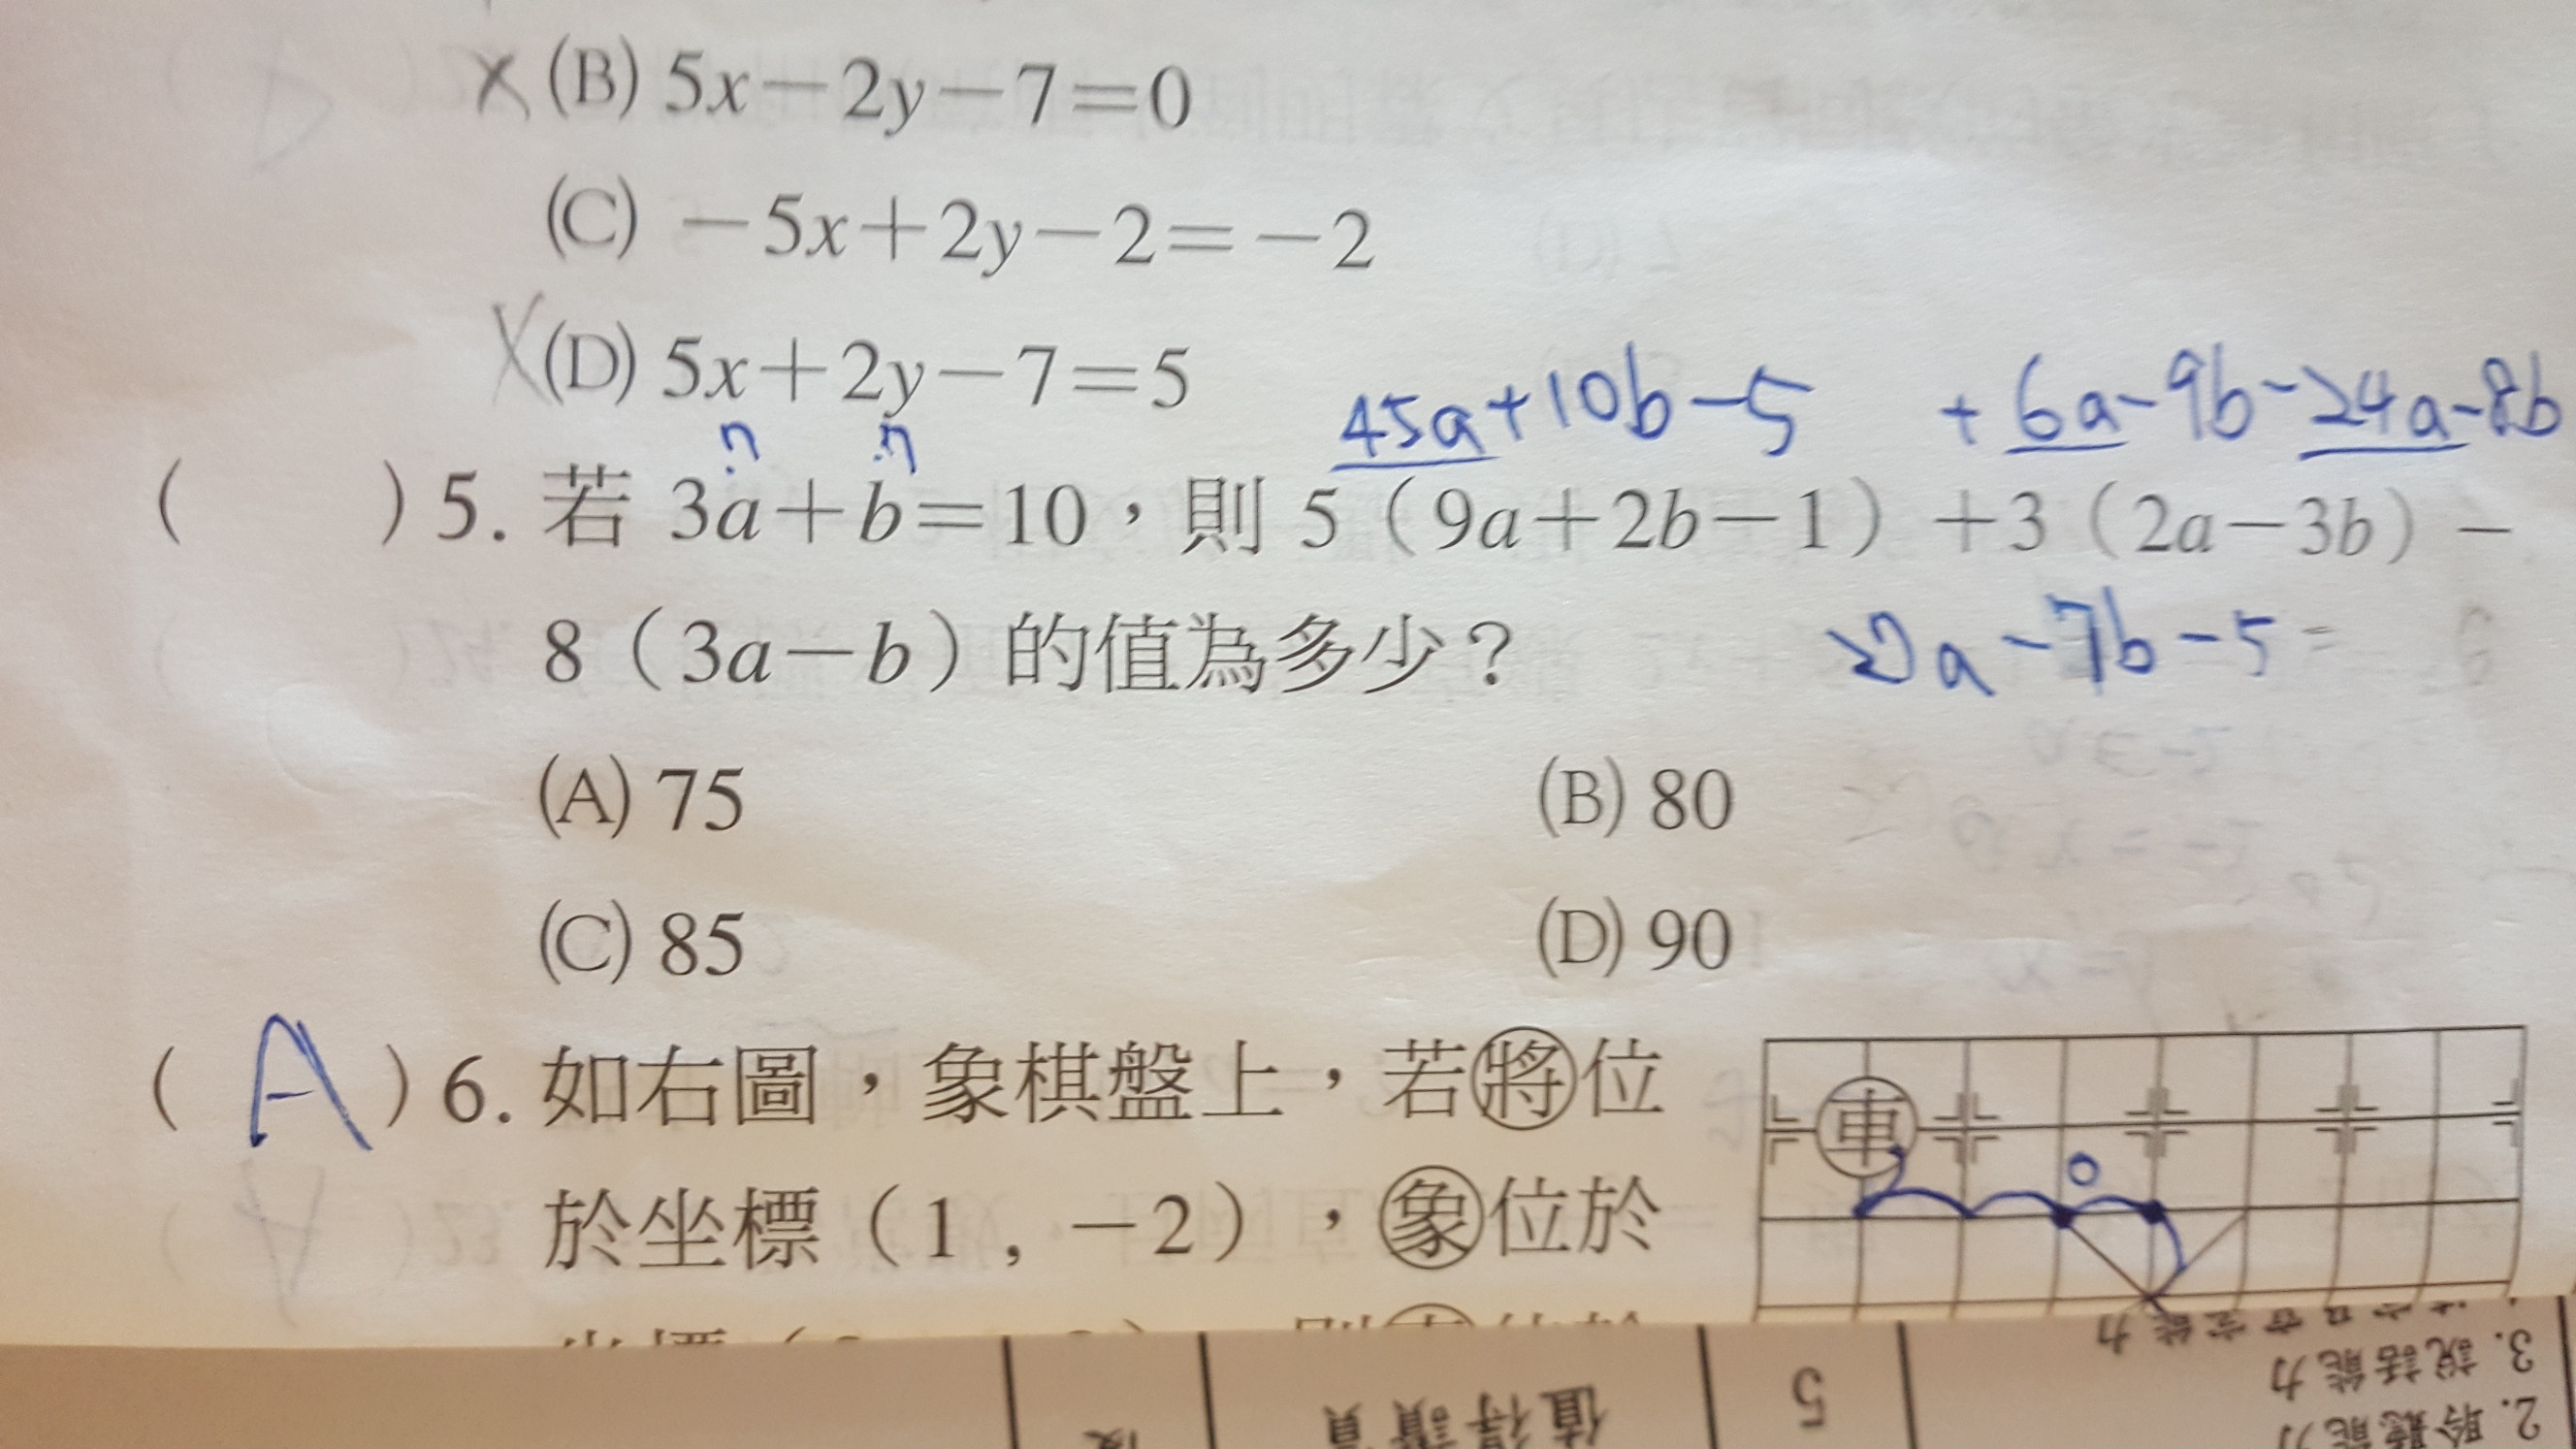 ×(B) 5x－2y－7＝0
(C) －5x＋2y－2＝－2
×(D) 5x＋2y－7＝5
45a+10b-5 +6a-9b-24a-8b
(    )5. 若 3a＋b＝10，則 5（9a＋2b－1）＋3（2a－3b）－
8（3a－b）的值為多少？
a-7b-5=
(A) 75 (B) 80
(C) 85 (D) 90
( A )6. 如右圖，象棋盤上，若將位
於坐標（1 , －2），象位於
車
5
值得讚賞
3. 說話能力
2. 聆聽能力